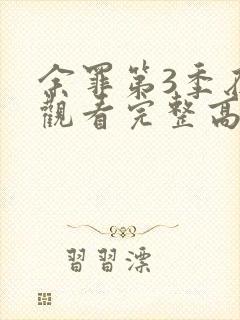 余罪第3季在
觀看完整高
習習漂